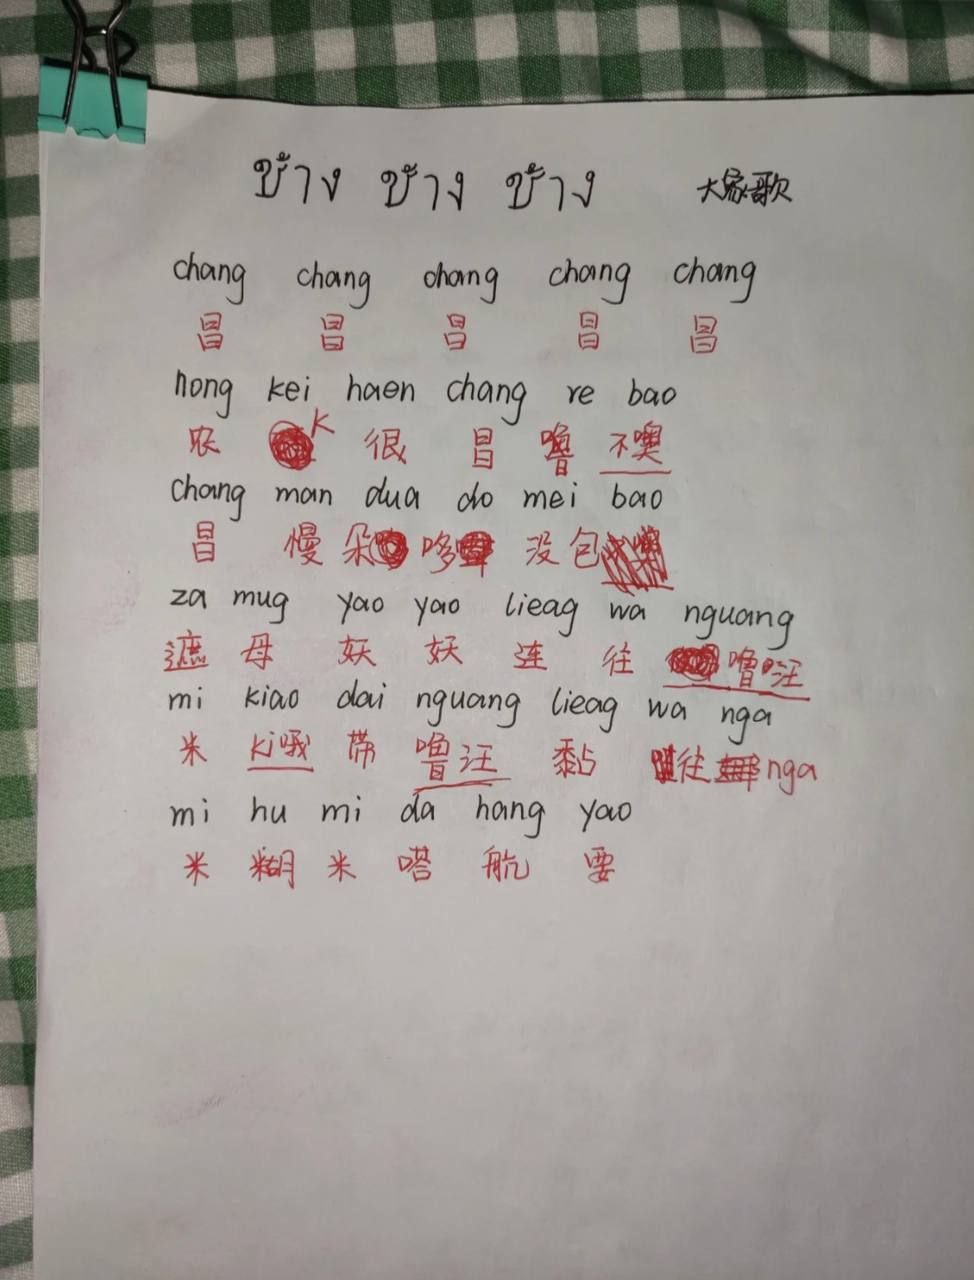 ช้าง ช้าง ช้าง 大象歌
chang chang chang chang chang
昌 昌 昌 昌 昌
nong kei haen chang re bao
农 K 很 昌 噜 不噢
chang man dua do mei bao
昌 慢 朵 哆 没 包
za mug yao yao lieag wa nguang
遮 母 妖 妖 连 往 噜汪
mi kiao dai nguang lieag wa nga
米 ki哦 带 噜汪 黏 往 nga
mi hu mi da hang yao
米 糊 米 嗒 航 要